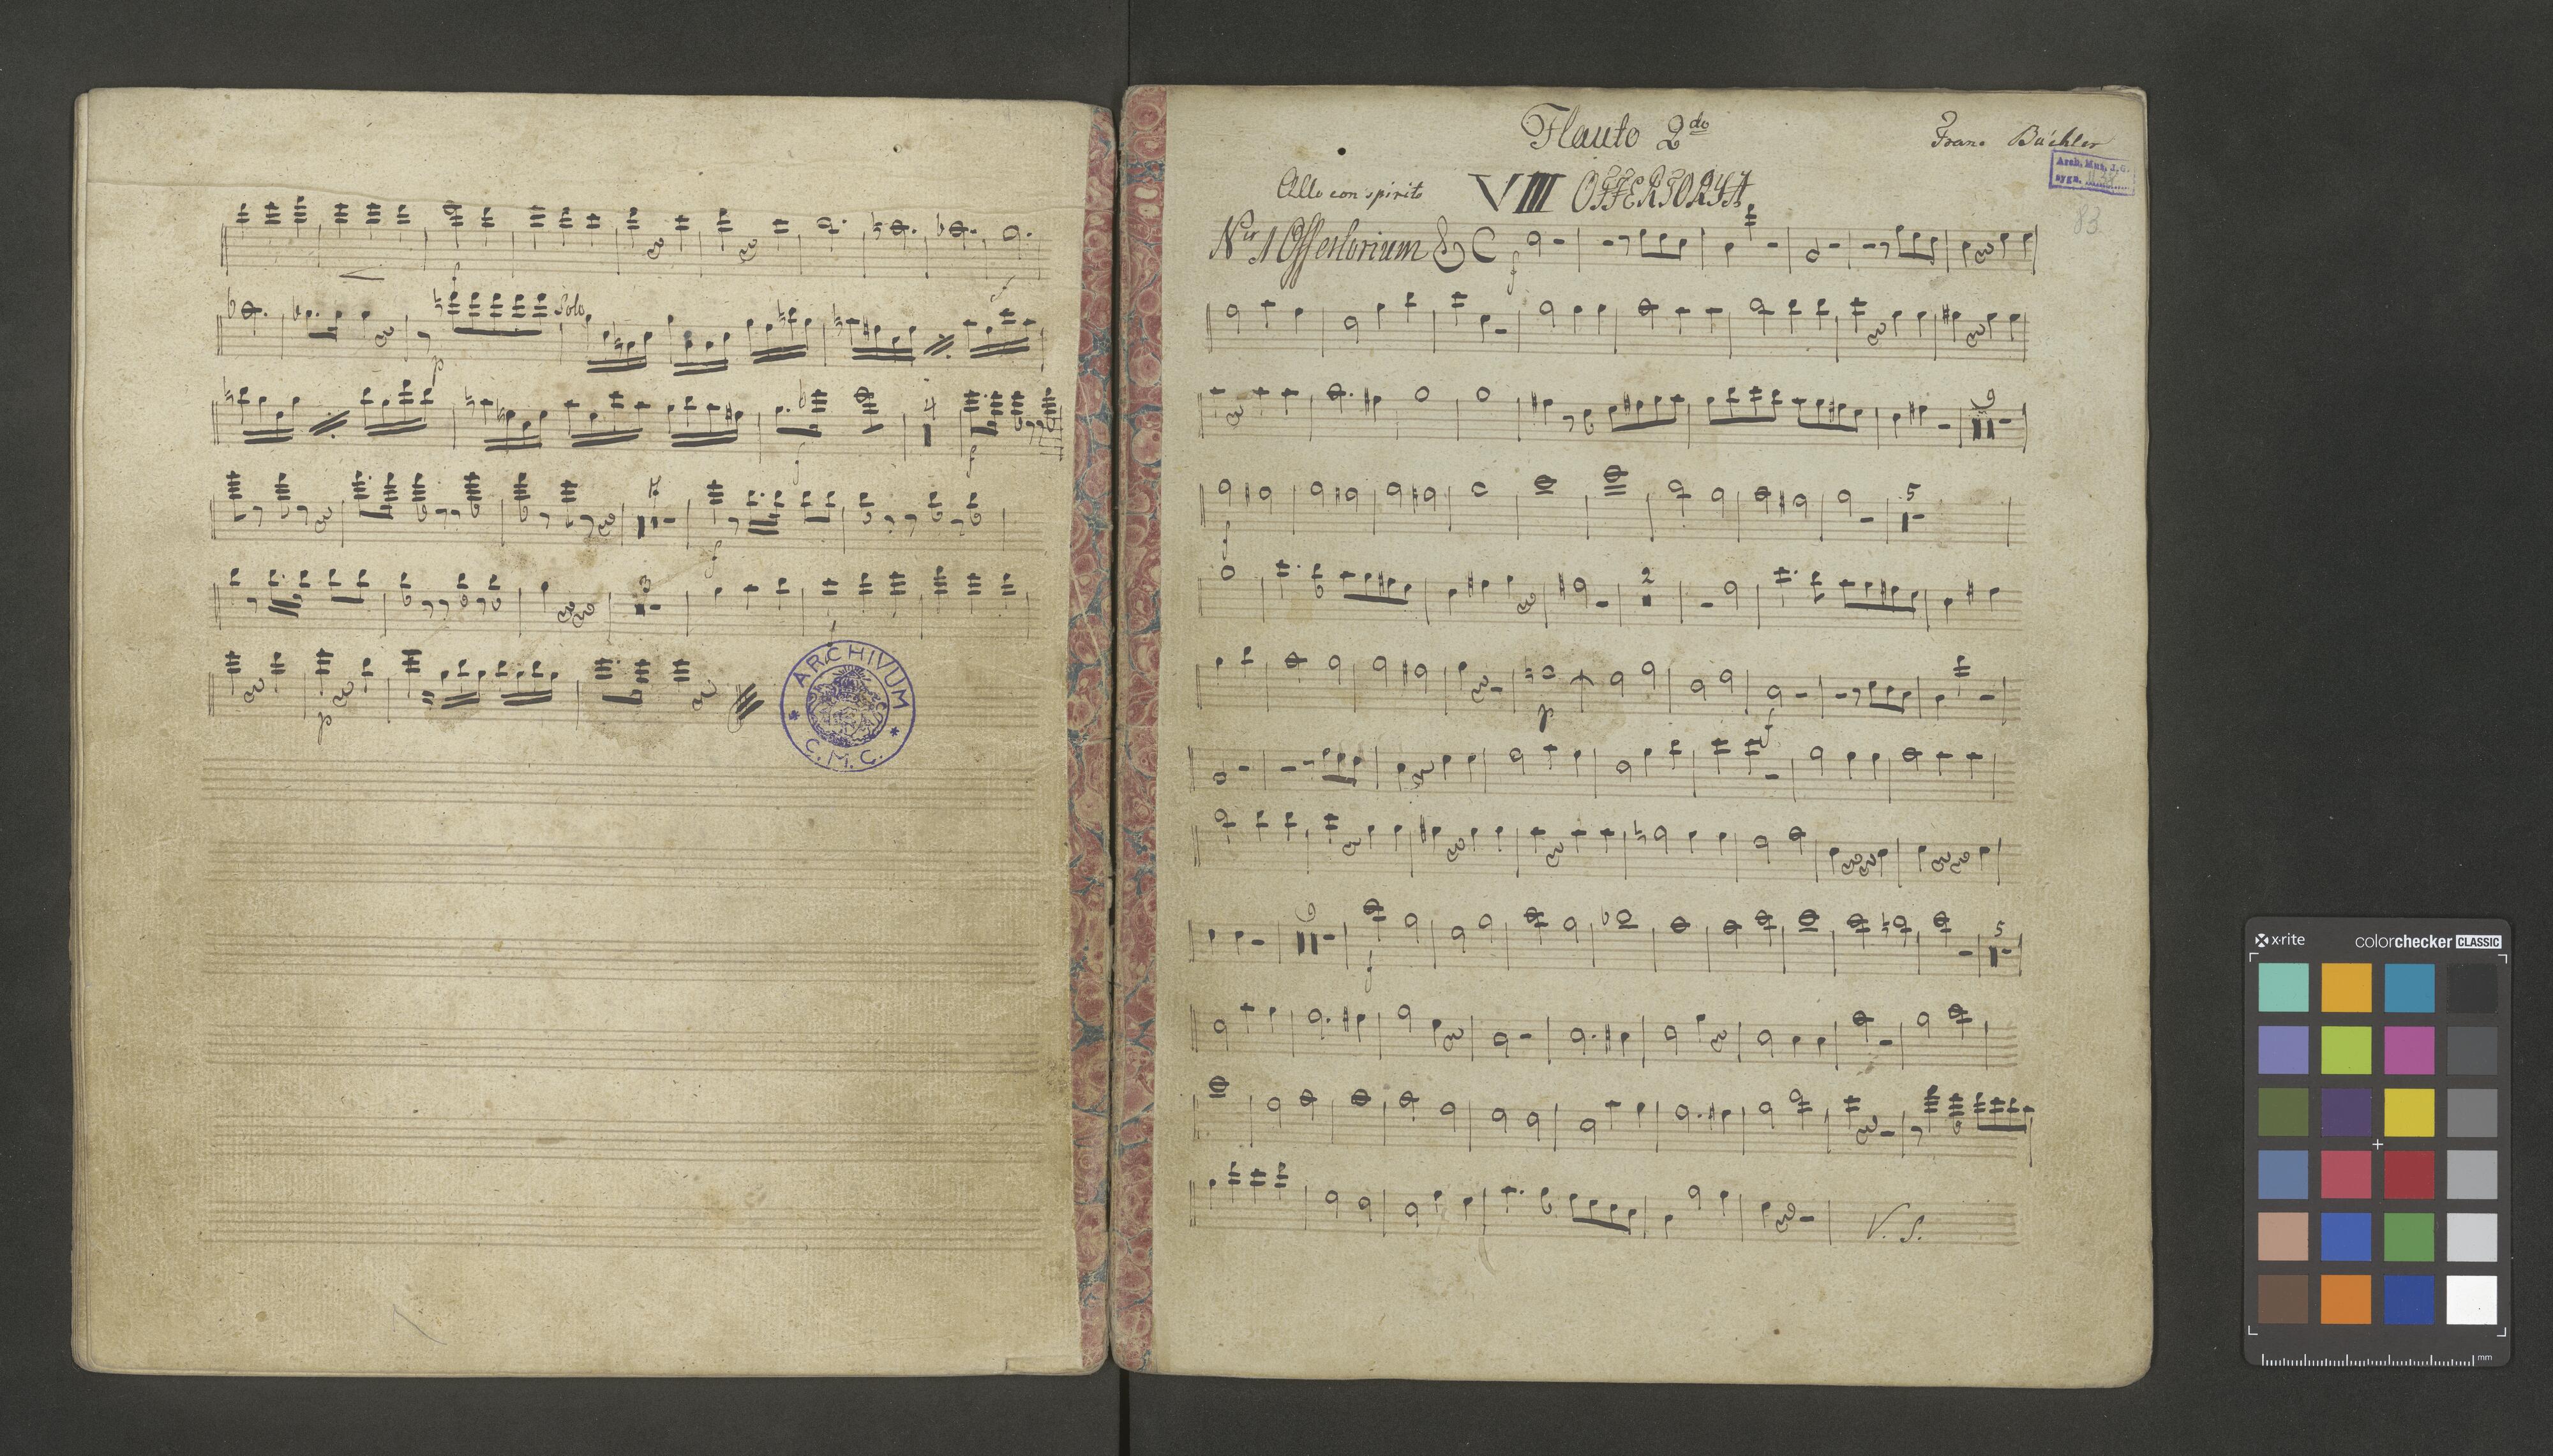 f
p
Solo
4
f
f
f
3
p
ARCHIVUM
C. M. C.
Flauto 2do
Franc Büchler
Arch. Mus. J. G.
sygn.
83
Allo con spirito
VIII OFFERTORIA
Nro 1 Offertorium
f
9
5
f
2
p
f
9
f
5
V. S.
x-rite
colorchecker CLASSIC
mm